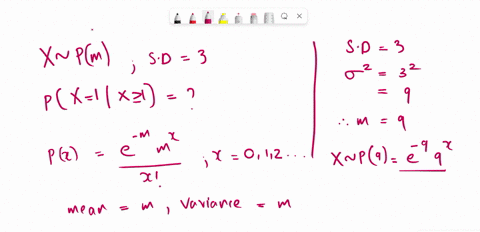 X~P(m) ; S.D = 3
P(X=1 | X≥1) = ?
P(x) = e^-m m^x / x! ; x = 0,1,2...
mean = m , Variance = m
S.D = 3
σ² = 3²
= 9
∴ m = 9
X~P(9) = e^-9 9^x